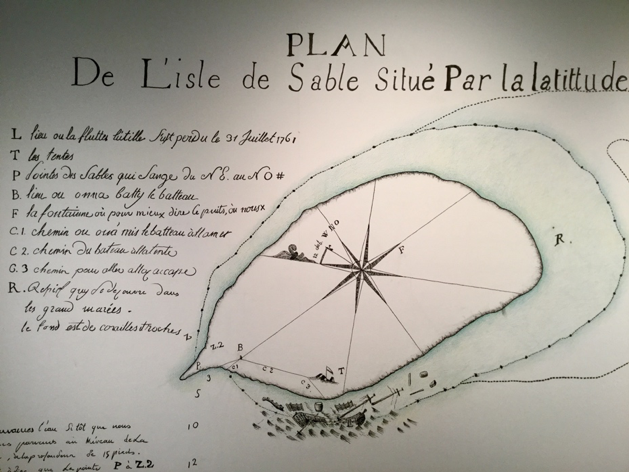 PLAN
De L'isle de Sable Situé Par la latittude
L lieu ou la flutte lutille s'est perdu le 31 Juillet 1761
T les tentes
P pointe des Sables qui Change du NE. au NO #
B. lieu ou on na batty le batteau
F la fontaine ou pour mieux dire le puits, ou nousx
C.1 chemin ou on a mis le batteau a la mer
C 2. chemin du bateau a la tente
C.3 chemin pour aller
R. Resif quy se decouvre dans
les grand marées.
le fond est de corailles et roches
R.
F
N O
Z
Z.2
B
P
C1
C 2
C3
T
3
5
l'eau Sitôt que nous
au Niveau de La
profondeur de 15 pieds.
que La pointe P à Z.2
10
12